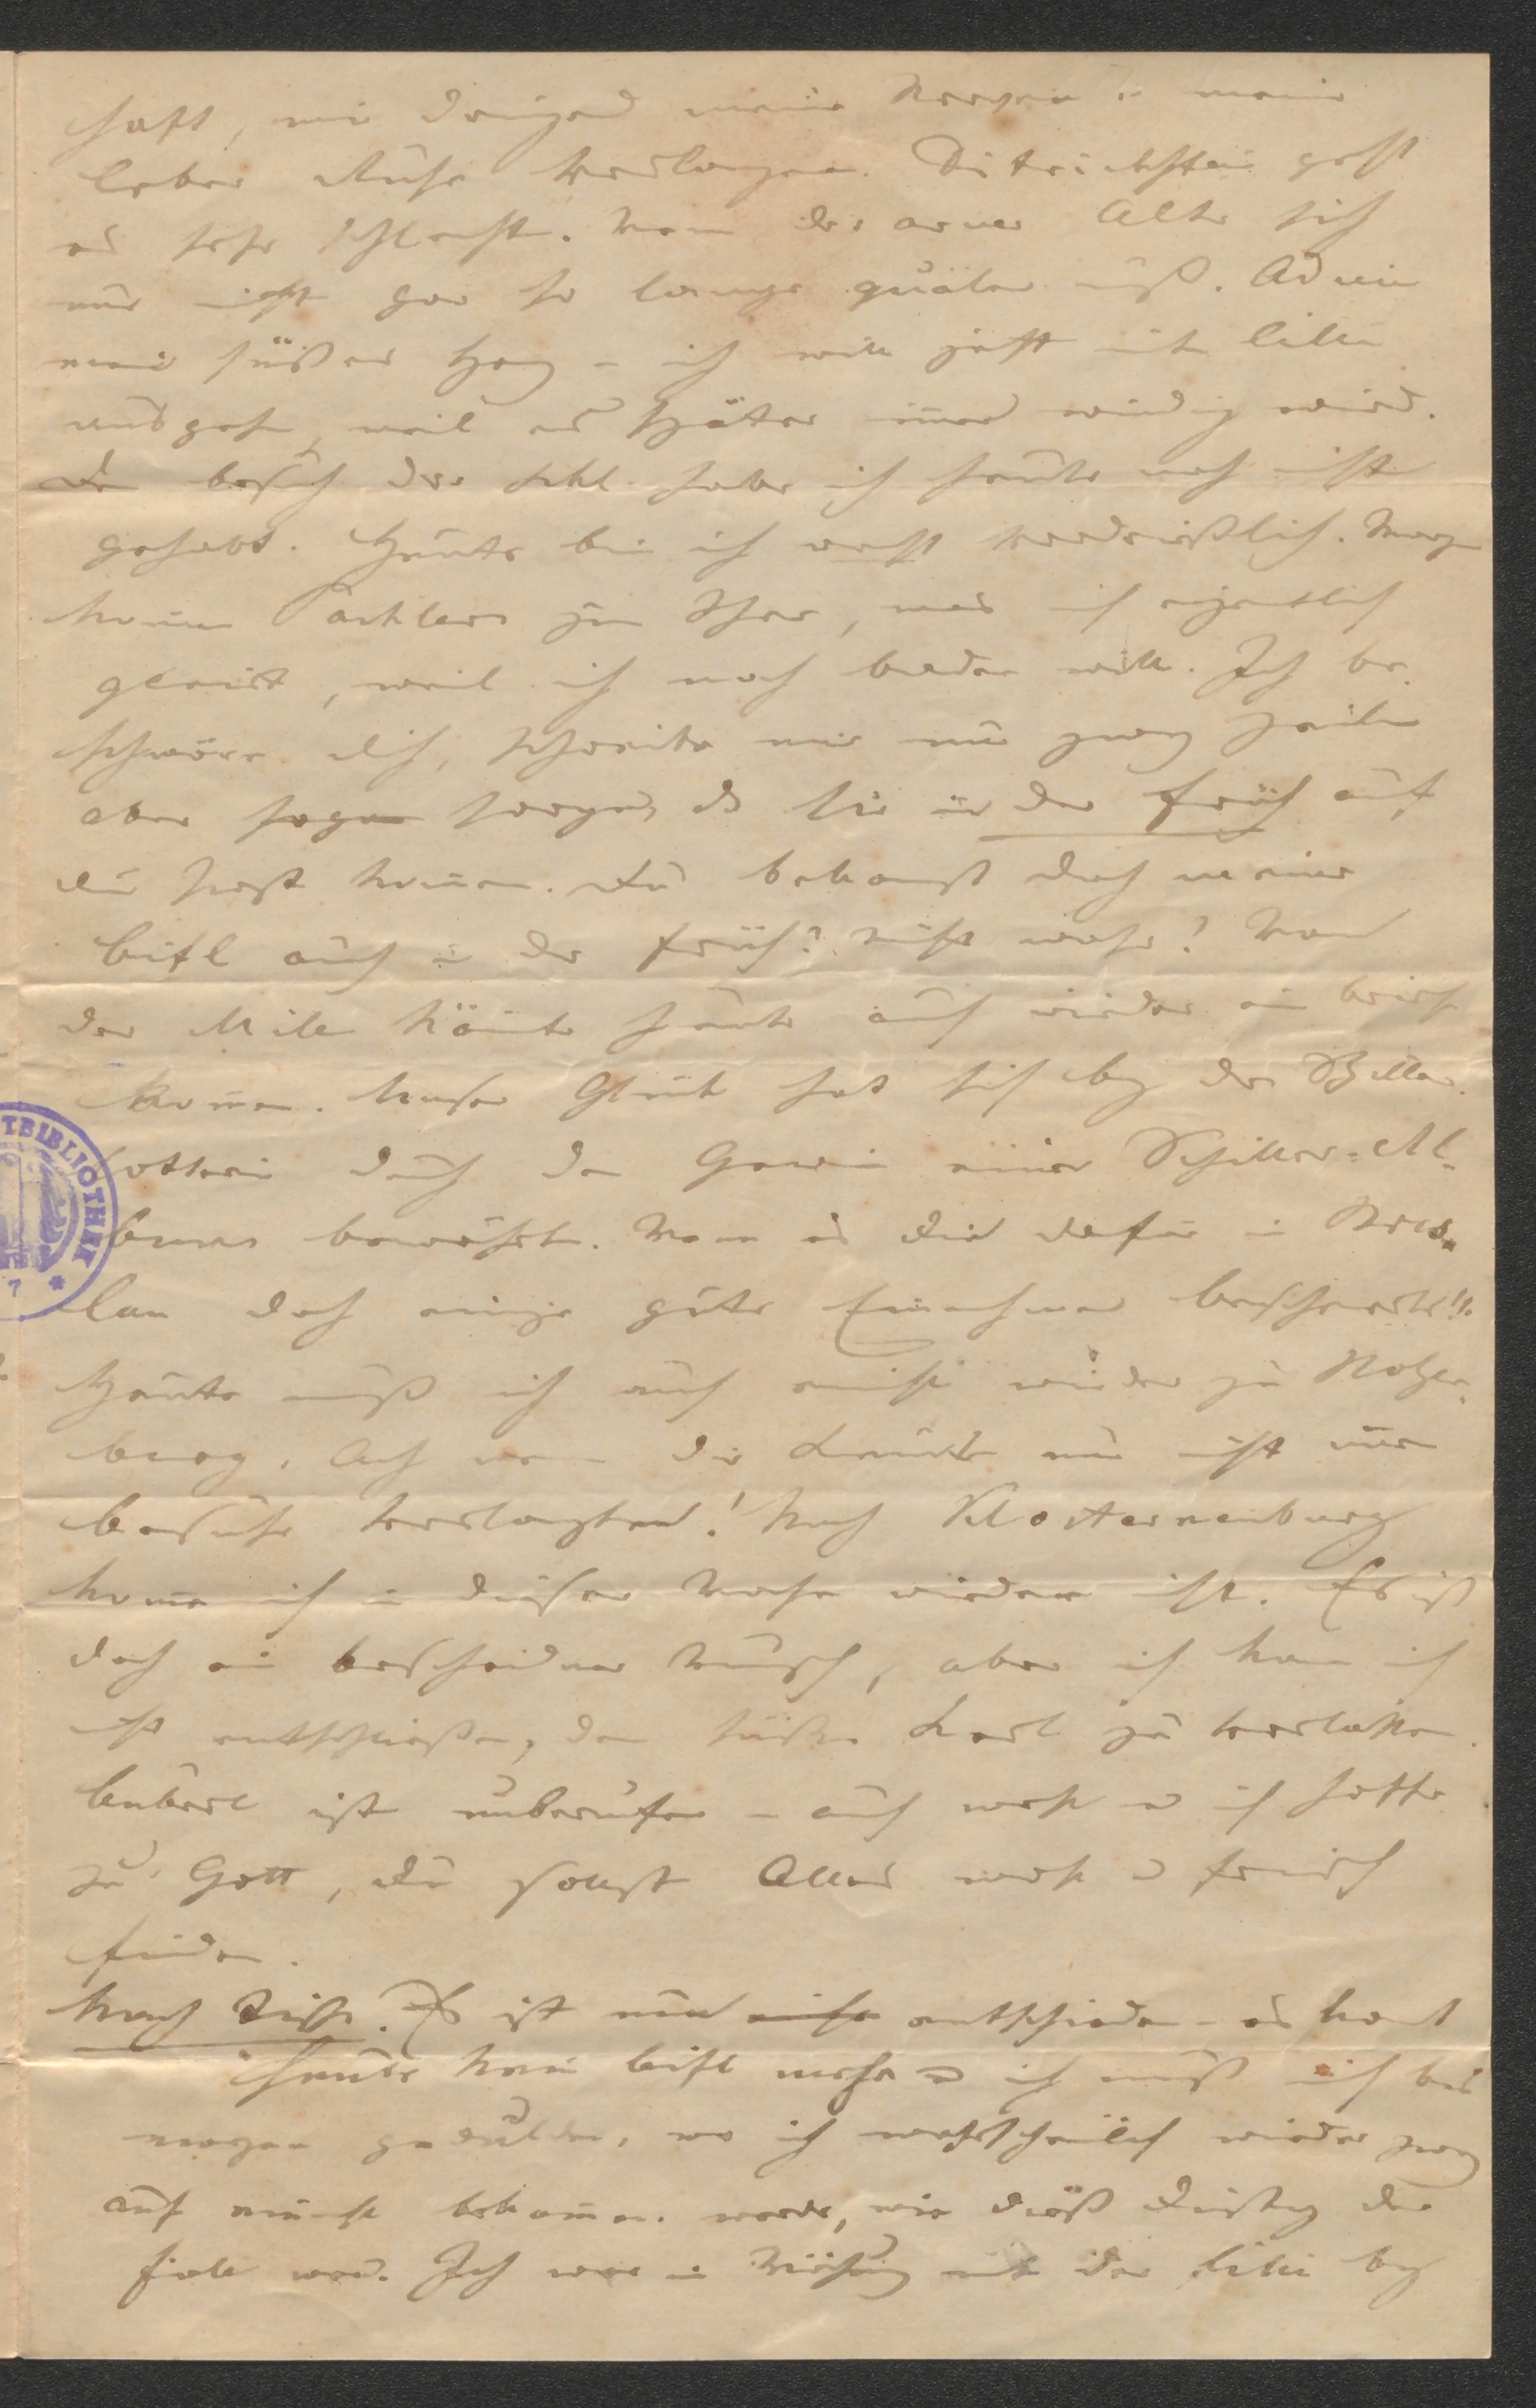 haft, wie dringend meine Nerven u meine
Leber Ruhe verlangen. Ditrichstein geht
es sehr schlecht. Wenn der arme Alte sich
nur nicht gar so lange quälen muß. Adieu
mein süßes Herz – ich will jetzt mit Lilli
ausgehn, weil es später immer windig wird.
Den Besuch der Schl. habe ich heute noch nicht
gehabt. Heute bin ich recht verdrießlich. Morgen
kommen Pachlers zum Thee, was ich eigentlich
, weil ich noch baden will. Ich be-
schwöre dich, schreibe mir nur zwey Zeilen
aber sorge, dß sie in der Früh auf
die Post kommen. Du bekomst doch meine
Briefl auch in der Früh? nicht wahr? Von
der Mila könnte heute auch wieder ein Brief
kommen. Unser Glück hat sich bey der Schiller-
lotterie durch den Gewinn eines Schiller-Al-
bums bewährt. Wenn es dir dafür in Bres-
lau doch einige gute Einnahmen bescheerte!!
Heute muß ich auch wieder zu Rosen-
berg. Ach wenn die Leute nur nicht immer
Besuche verlangten! Nach Klosterneuburg
komme ich in dieser Woche wieder nicht. Es ist
doch ein bescheidner Wunsch, aber ich kann mich
nicht entschließen, den süßen Kerl zu verlassen.
Buberl ist unberufen – auch wohl u ich hoffe
zu Gott, du sollst Alles wohl u frisch
finden.
Nach Tisch. Es ist nun entschieden – es komt
heute kein Briefl mehr u ich muß mich bis
morgen gedulden, wo ich wahrscheinlich wieder zwey
auf einmal bekommen werde, wie dieß Dienstag der
Fall war. Ich war in Währing mit der Lilli bey